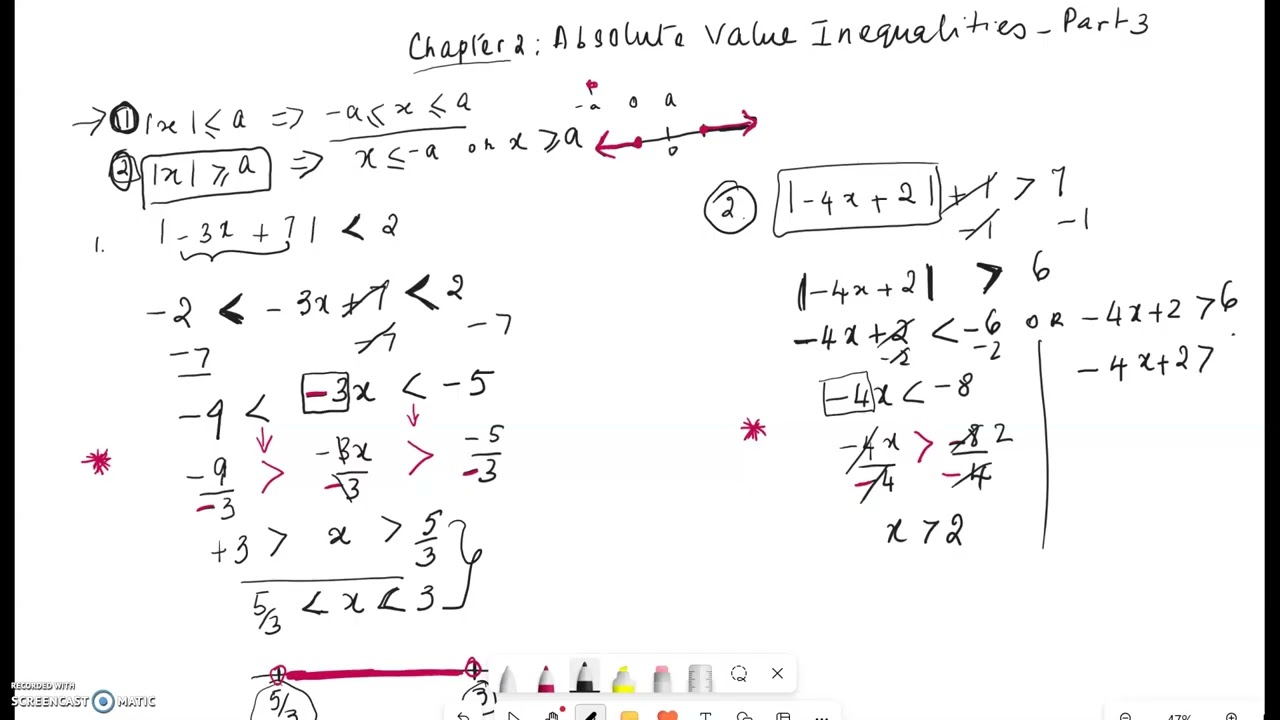 Chapter 2: Absolute Value Inequalities - Part 3
→ ① |x| ⩽ a ⇒ -a ⩽ x ⩽ a
-a 0 a
② |x| ⩾ a ⇒ x ≤ -a or x ⩾ a
0
1. |-3x + 7| < 2
-2 < -3x + 7 < 2
-7 -7 -7
-9 < -3x < -5
* -9/-3 > -3x/-3 > -5/-3
+3 > x > 5/3
5/3 < x < 3
5/3 3
② |-4x + 2| + 1 > 7
-1 -1
|-4x + 2| > 6
-4x + 2 < -6 OR -4x + 2 > 6
-2 -2
-4x + 2 >
-4x < -8
* -4x/-4 > -8/-4 2
x > 2
RECORDED WITH
SCREENCAST O MATIC
47%